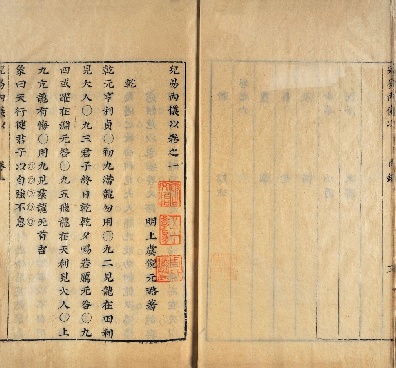 兒易內儀以卷之一
明上虞倪元璐著
乾
乾元亨利貞〇初九潛龍勿用〇九二見龍在田利
見大人〇九三君子終日乾乾夕惕若厲无咎〇九
四或躍在淵无咎〇九五飛龍在天利見大人〇上
九亢龍有悔〇用九見羣龍无首吉
象曰天行健君子以自強不息